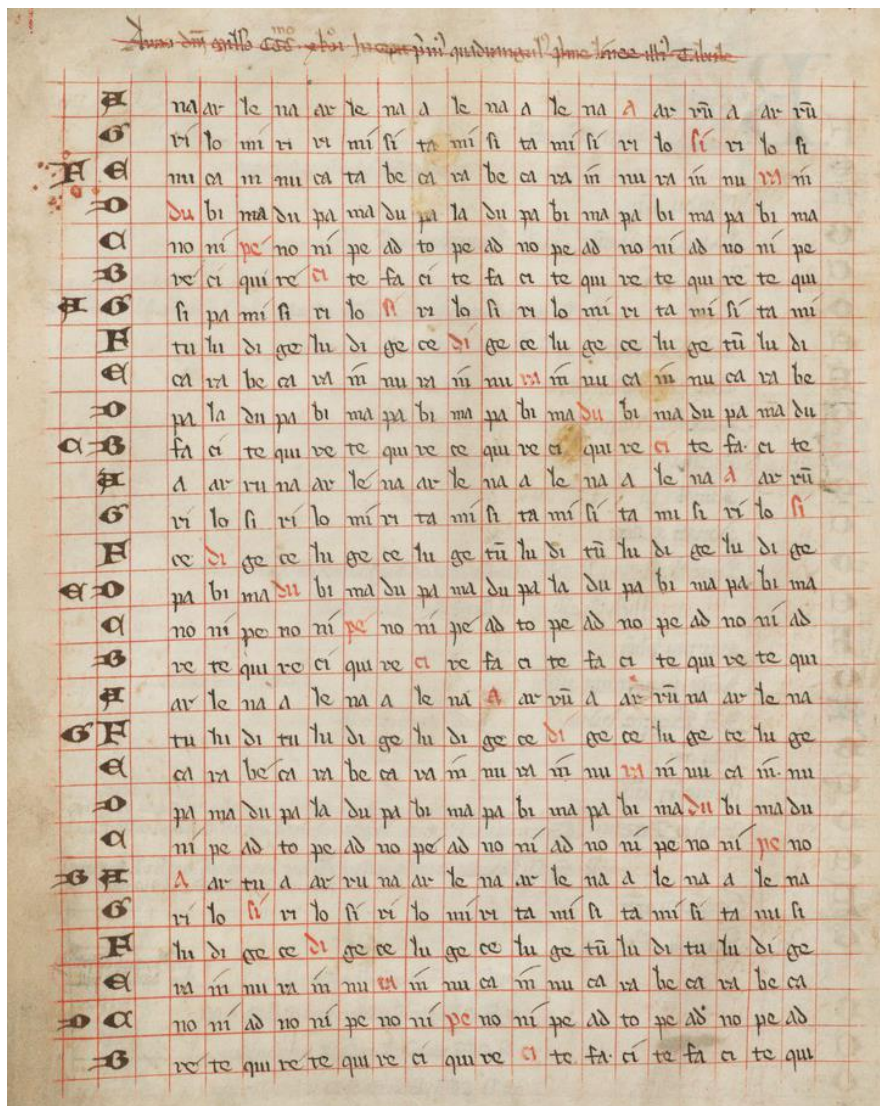 Anno dñi millo CCC
A na ar le na ar le na a le na a le na a ar rũ a ar rũ
G ri lo mi ri ri mi si ta mi si ta mi si ri lo si ri lo si
F E nu ca in nu ca ta be ca ra be ca ra in nu ra in nu ra in
D du bi ma du pa ma du pa la du pa bi ma pa bi ma pa bi ma
C no ni pe no ni pe ad to pe ad no pe ad no ni ad no ni pe
B re ci qui re ci te fa ci te fa ci te qui re te qui re te qui
A G si pa mi si ri lo si ri lo si ri lo mi ri ta mi si ta mi
F tu lu di ge lu di ge ce di ge ce lu ge ce lu ge tũ lu di
E ca ra be ca ra in nu ra in nu ra in nu ca in nu ca ra be
D pa la du pa bi ma pa bi ma pa bi ma du bi ma du pa ma du
C B fa ci te qui re te qui re ce qui re ci qui re ci te fa ci te
A a ar ru na ar le na ar le na a le na a le na a ar rũ
G ri lo si ri lo mi ri ta mi si ta mi si ta mi si ri lo si
F ce di ge ce lu ge ce lu ge tũ lu di tũ lu di ge lu di ge
E D pa bi ma du bi ma du pa ma du pa la du pa bi ma pa bi ma
C no ni pe no ni pe no ni pe ad to pe ad no pe ad no ni ad
B re te qui re ci qui re ci re fa ci te fa ci te qui re te qui
A ar le na a le na a le na a ar rũ a ar rũ na ar le na
G F tu lu di tu lu di ge lu di ge ce di ge ce lu ge ce lu ge
E ca ra be ca ra be ca ra in nu ra in nu ra in nu ca in nu
D pa ma du pa la du pa bi ma pa bi ma pa bi ma du bi ma du
C ni pe ad to pe ad no pe ad no ni ad no ni pe no ni pe no
B A a ar tu a ar ru na ar le na ar le na a le na a le na
G ri lo si ri lo si ri lo mi ri ta mi si ta mi si ta mi si
F lu di ge ce di ge ce lu ge ce lu ge tũ lu di tu lu di ge
E ra in nu ra in nu ra in nu ca in nu ca ra be ca ra be ca
D C no ni ad no ni pe no ni pe no ni pe ad to pe ad no pe ad
B re te qui re te qui re ci qui re ci te fa ci te fa ci te qui